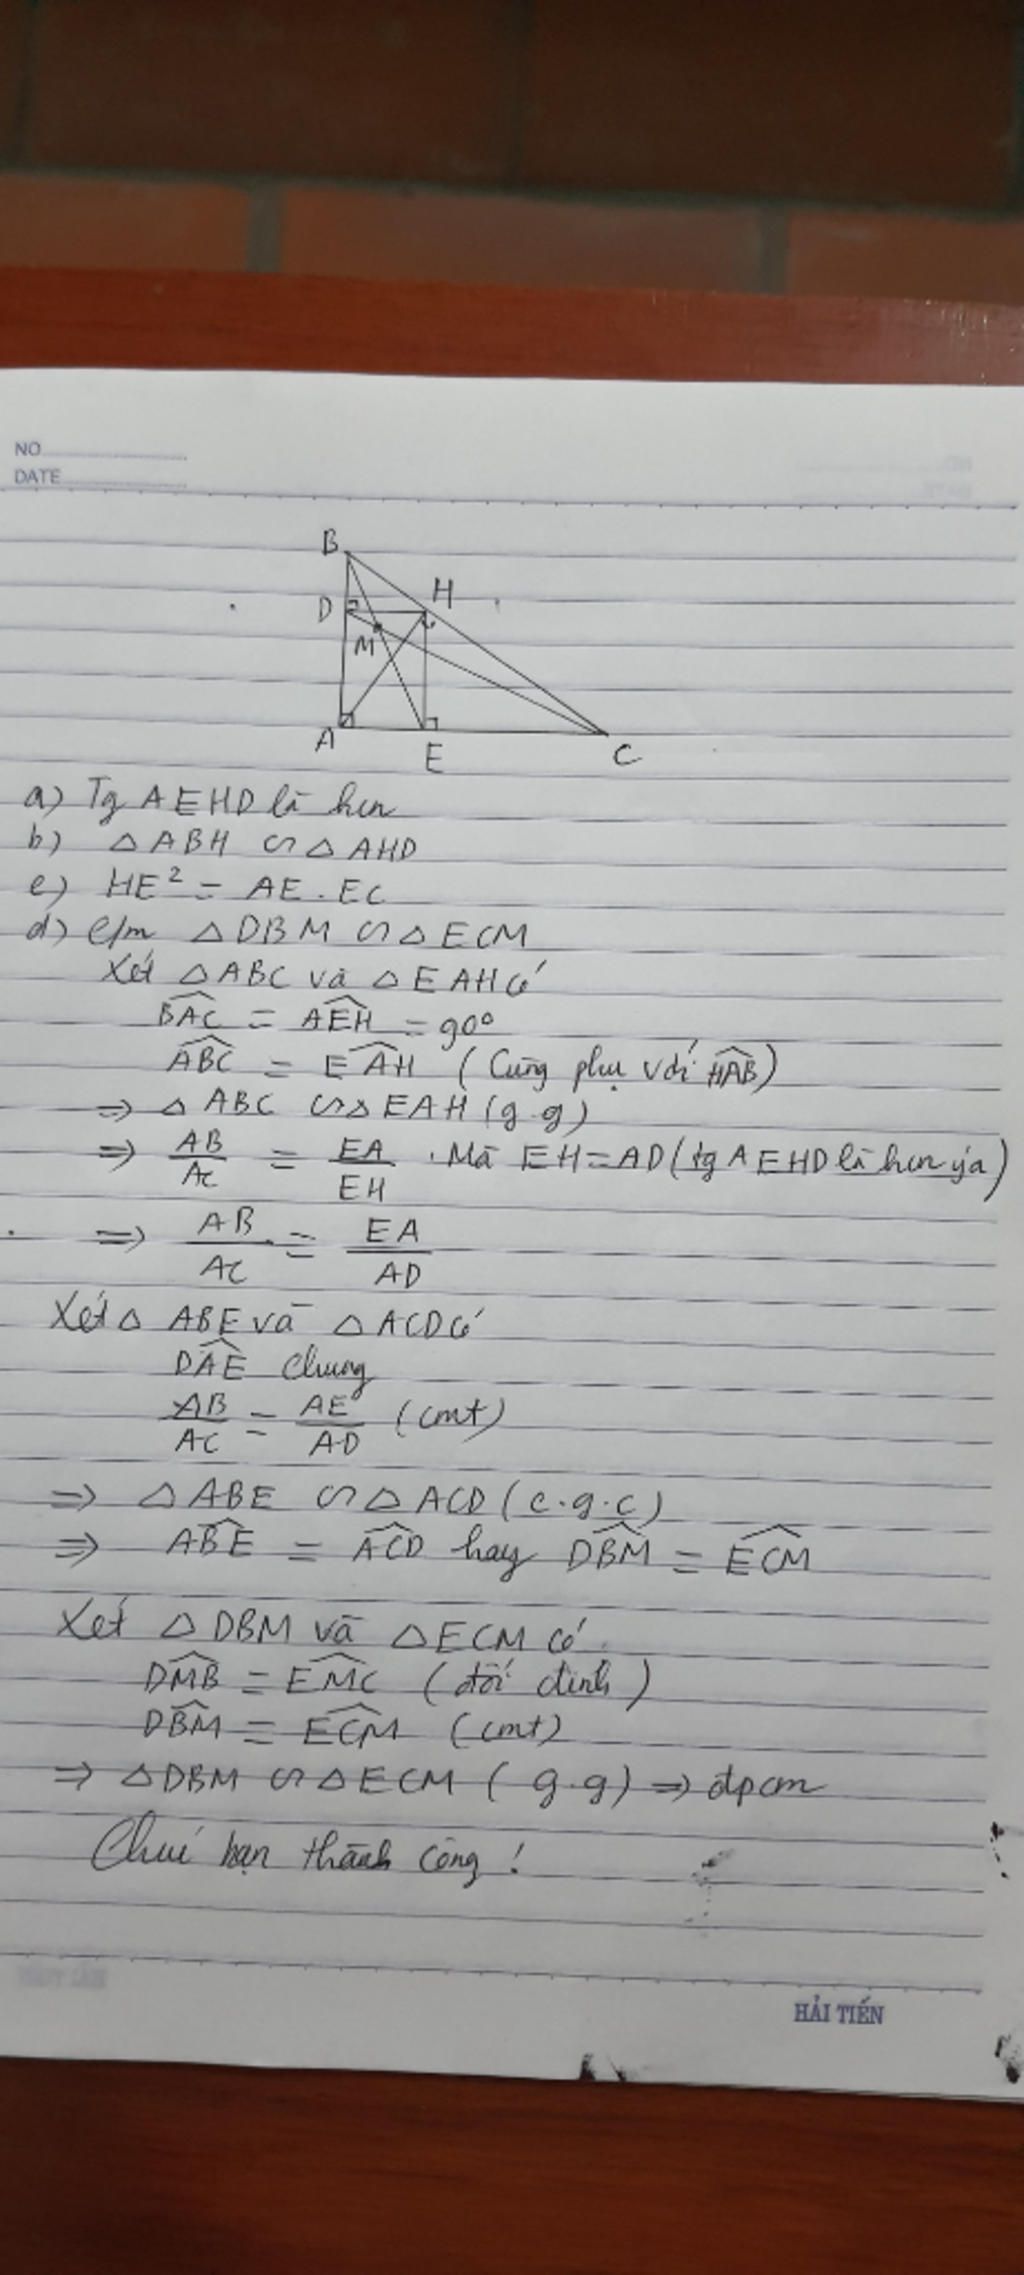 NO
DATE
B
D
H
M
A
E
C
a) Tg AEHD là hcn
b) △ABH ∽ △AHD
c) HE² = AE . EC
d) c/m △DBM ∽ △ECM
Xét △ABC và △EAH có
\widehat{BAC} = \widehat{AEH} = 90°
\widehat{ABC} = \widehat{EAH} (Cùng phụ với \widehat{HAB})
⇒ △ABC ∽ △EAH (g.g)
⇒ AB/AC = EA/EH . Mà EH = AD (tg AEHD là hcn ýa)
⇒ AB/AC = EA/AD
Xét △ABE và △ACD có
\widehat{DAE} chung
AB/AC = AE/AD (cmt)
⇒ △ABE ∽ △ACD (c.g.c)
⇒ \widehat{ABE} = \widehat{ACD} hay \widehat{DBM} = \widehat{ECM}
Xét △DBM và △ECM có
\widehat{DMB} = \widehat{EMC} (đối đỉnh)
\widehat{DBM} = \widehat{ECM} (cmt)
⇒ △DBM ∽ △ECM (g.g) ⇒ đpcm
Chúc bạn thành công !
HẢI TIẾN